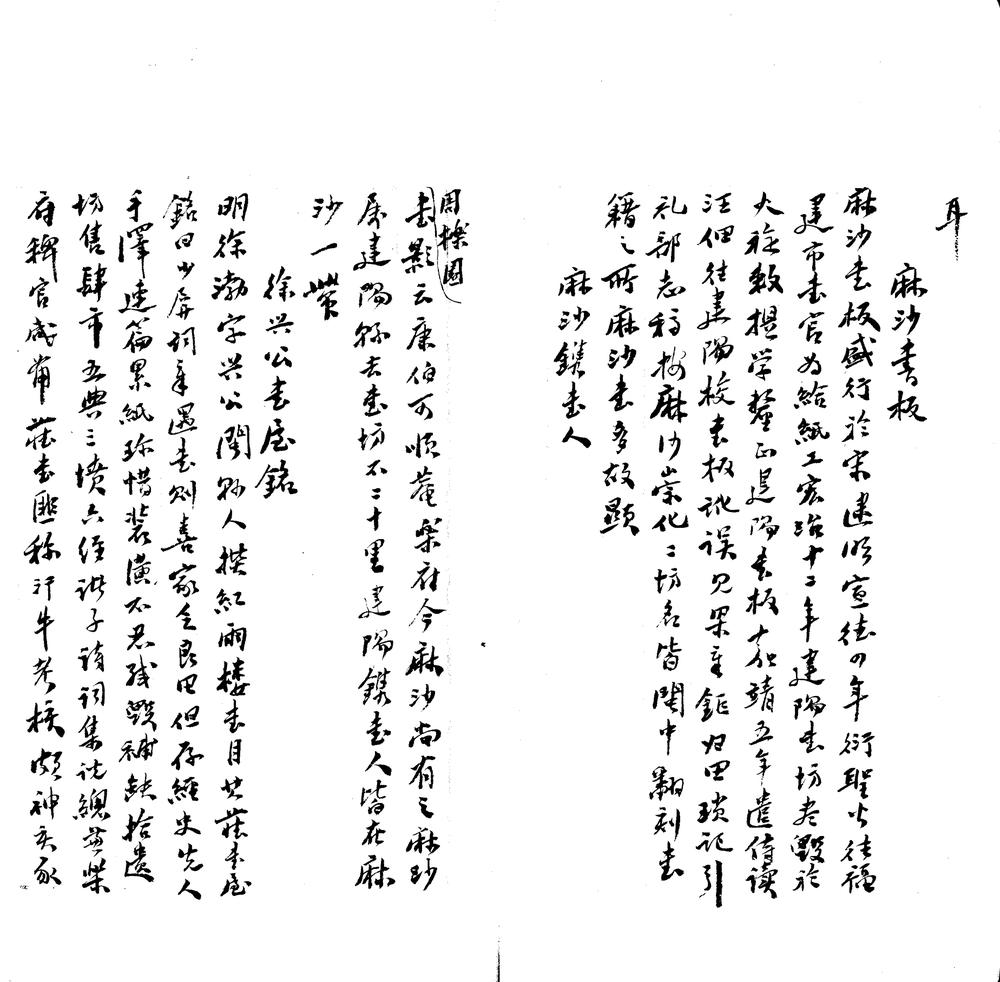 耳
麻沙書板
麻沙書板盛行於宋逮明宣德四年衍聖公往福
建市書官为給紙工宏治十二年建陽書坊尽毀於
火旋敕提学釐正建陽書板嘉靖五年遣侍读
汪佃往建陽校書板訛误见梁章鉅归田琐记引
礼部志稿按麻沙崇化二坊名皆閩中翻刻書
籍之所麻沙書多故顯
麻沙鐫書人
周櫟園
書影云康伯可順菴樂府今麻沙尚有之麻沙
属建陽縣去書坊不二十里建陽鐫書人皆在麻
沙一帶
徐兴公書屋銘
明徐渤字兴公閩縣人撰紅雨樓書目其藏書屋
銘曰少弄词章遇書則喜家乏良田但存經史先人
手澤連篇累紙珍惜裝潢不忍残毀補缺拾遺
坊售肆市五典三墳六經诸子诗词集说總兼
府稗官咸備藏書匪称汗牛考核頗